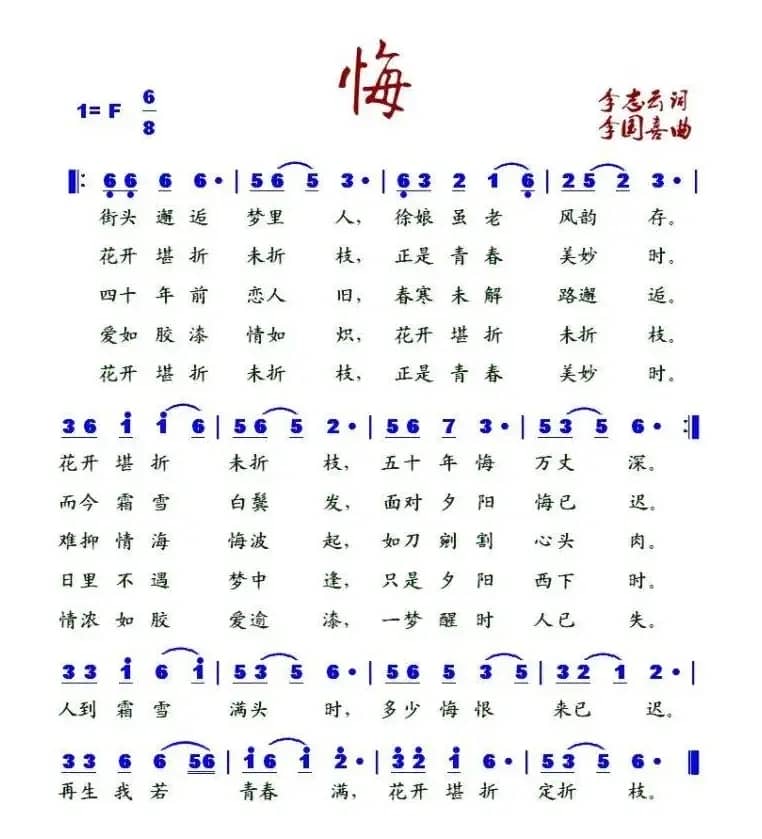 悔
1= F 6/8
李志云词
李国喜曲
‖: 6 6 6 6 · | 5 6 5 3 · | 6 3 2 1 6 | 2 5 2 3 · |
街头 邂逅 梦里 人，徐娘 虽老 风韵 存。
花开 堪折 未折 枝，正是 青春 美妙 时。
四十 年前 恋人 旧，春寒 未解 路邂 逅。
爱如 胶漆 情如 炽，花开 堪折 未折 枝。
花开 堪折 未折 枝，正是 青春 美妙 时。
3 6 1 1 6 | 5 6 5 2 · | 5 6 7 3 · | 5 3 5 6 · :‖
花开 堪折 未折 枝，五十 年悔 万丈 深。
而今 霜雪 白鬓 发，面对 夕阳 悔已 迟。
难抑 情海 悔波 起，如刀 剜割 心头 肉。
日里 不遇 梦中 逢，只是 夕阳 西下 时。
情浓 如胶 爱逾 漆，一梦 醒时 人已 失。
3 3 1 6 1 | 5 3 5 6 · | 5 6 5 3 5 | 3 2 1 2 · |
人到 霜雪 满头 时，多少 悔恨 来已 迟。
3 3 6 6 5 6 | 1 6 1 2 · | 3 2 1 6 | 5 3 5 6 · ‖
再生 我若 青春 满，花开 堪折 定折 枝。